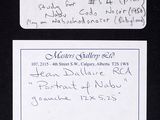 Study for #54 (Print)
Nabu
May on Nabuchodonosor (Babylone)
Masters Gallery Ltd
107, 2115 - 4th Street S.W., Calgary, Alberta T2S 1W8
Jean Dallaire RCA
"Portrait of Nabu"
gouache 12 x 5.25"